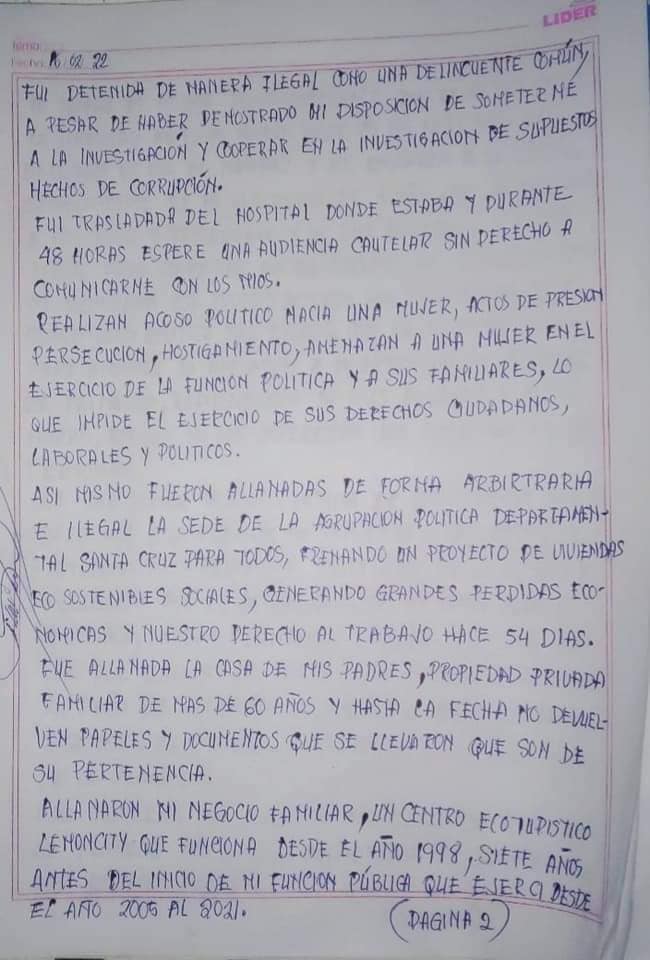 LIDER
Fecha 16 02 22
FUI DETENIDA DE MANERA ILEGAL COMO UNA DELINCUENTE COMÚN,
A PESAR DE HABER DEMOSTRADO MI DISPOSICION DE SOMETERME
A LA INVESTIGACIÓN Y COOPERAR EN LA INVESTIGACION DE SUPUESTOS
HECHOS DE CORRUPCIÓN.
FUI TRASLADADA DEL HOSPITAL DONDE ESTABA Y DURANTE
48 HORAS ESPERE UNA AUDIENCIA CAUTELAR SIN DERECHO A
COMUNICARME CON LOS MIOS.
REALIZAN ACOSO POLITICO HACIA UNA MUJER, ACTOS DE PRESION
PERSECUCION, HOSTIGAMIENTO, AMENAZAN A UNA MUJER EN EL
EJERCICIO DE LA FUNCION POLITICA Y A SUS FAMILIARES, LO
QUE IMPIDE EL EJERCICIO DE SUS DERECHOS CIUDADANOS,
LABORALES Y POLITICOS.
ASI MISMO FUERON ALLANADAS DE FORMA ARBIRTRARIA
E ILEGAL LA SEDE DE LA AGRUPACION POLITICA DEPARTAMEN-
TAL SANTA CRUZ PARA TODOS, FRENANDO UN PROYECTO DE VIVIENDAS
ECO SOSTENIBLES SOCIALES, GENERANDO GRANDES PERDIDAS ECO-
NOMICAS Y NUESTRO DERECHO AL TRABAJO HACE 54 DIAS.
FUE ALLANADA LA CASA DE MIS PADRES, PROPIEDAD PRIVADA
FAMILIAR DE MAS DE 60 AÑOS Y HASTA LA FECHA NO DEVUEL-
VEN PAPELES Y DOCUMENTOS QUE SE LLEVARON QUE SON DE
SU PERTENENCIA.
ALLANARON MI NEGOCIO FAMILIAR, UN CENTRO ECOTURISTICO
LEMONCITY QUE FUNCIONA DESDE EL AÑO 1998, SIETE AÑOS
ANTES DEL INICIO DE MI FUNCION PÚBLICA QUE EJERCI DESDE
EL AÑO 2005 AL 2021.
(PAGINA 2)